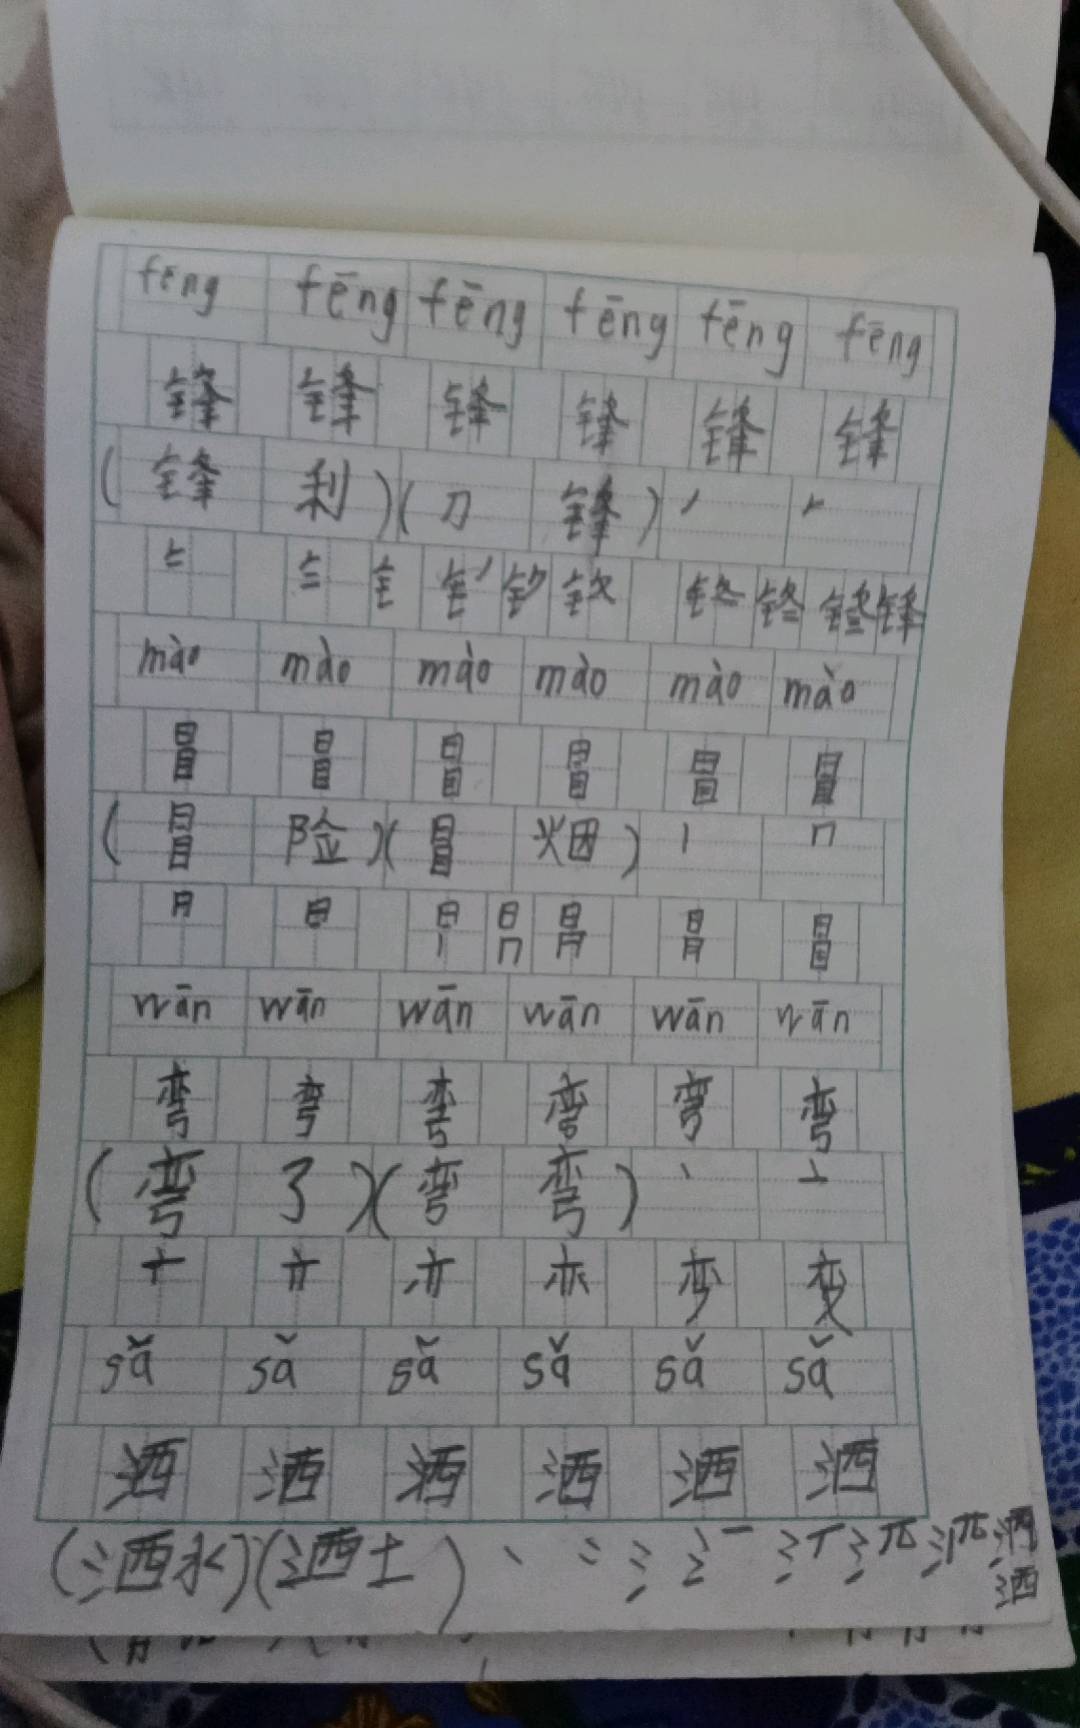 fēng fēng fēng fēng fēng fēng
锋 锋 锋 锋 锋 锋
(锋 利)(刀 锋)
māo mào mào mào mào mào
冒 冒 冒 冒 冒 冒
(冒 险)(冒 烟) 丨 冂
冃 冒
wān wān wān wān wān wān
弯 弯 弯 弯 弯 弯
(弯 了)(弯 弯) 丶 亠
亦 变
sǎ sǎ sǎ sǎ sǎ sǎ
洒 洒 洒 洒 洒 洒
(洒水)(洒土) 丶 冫 氵 洒